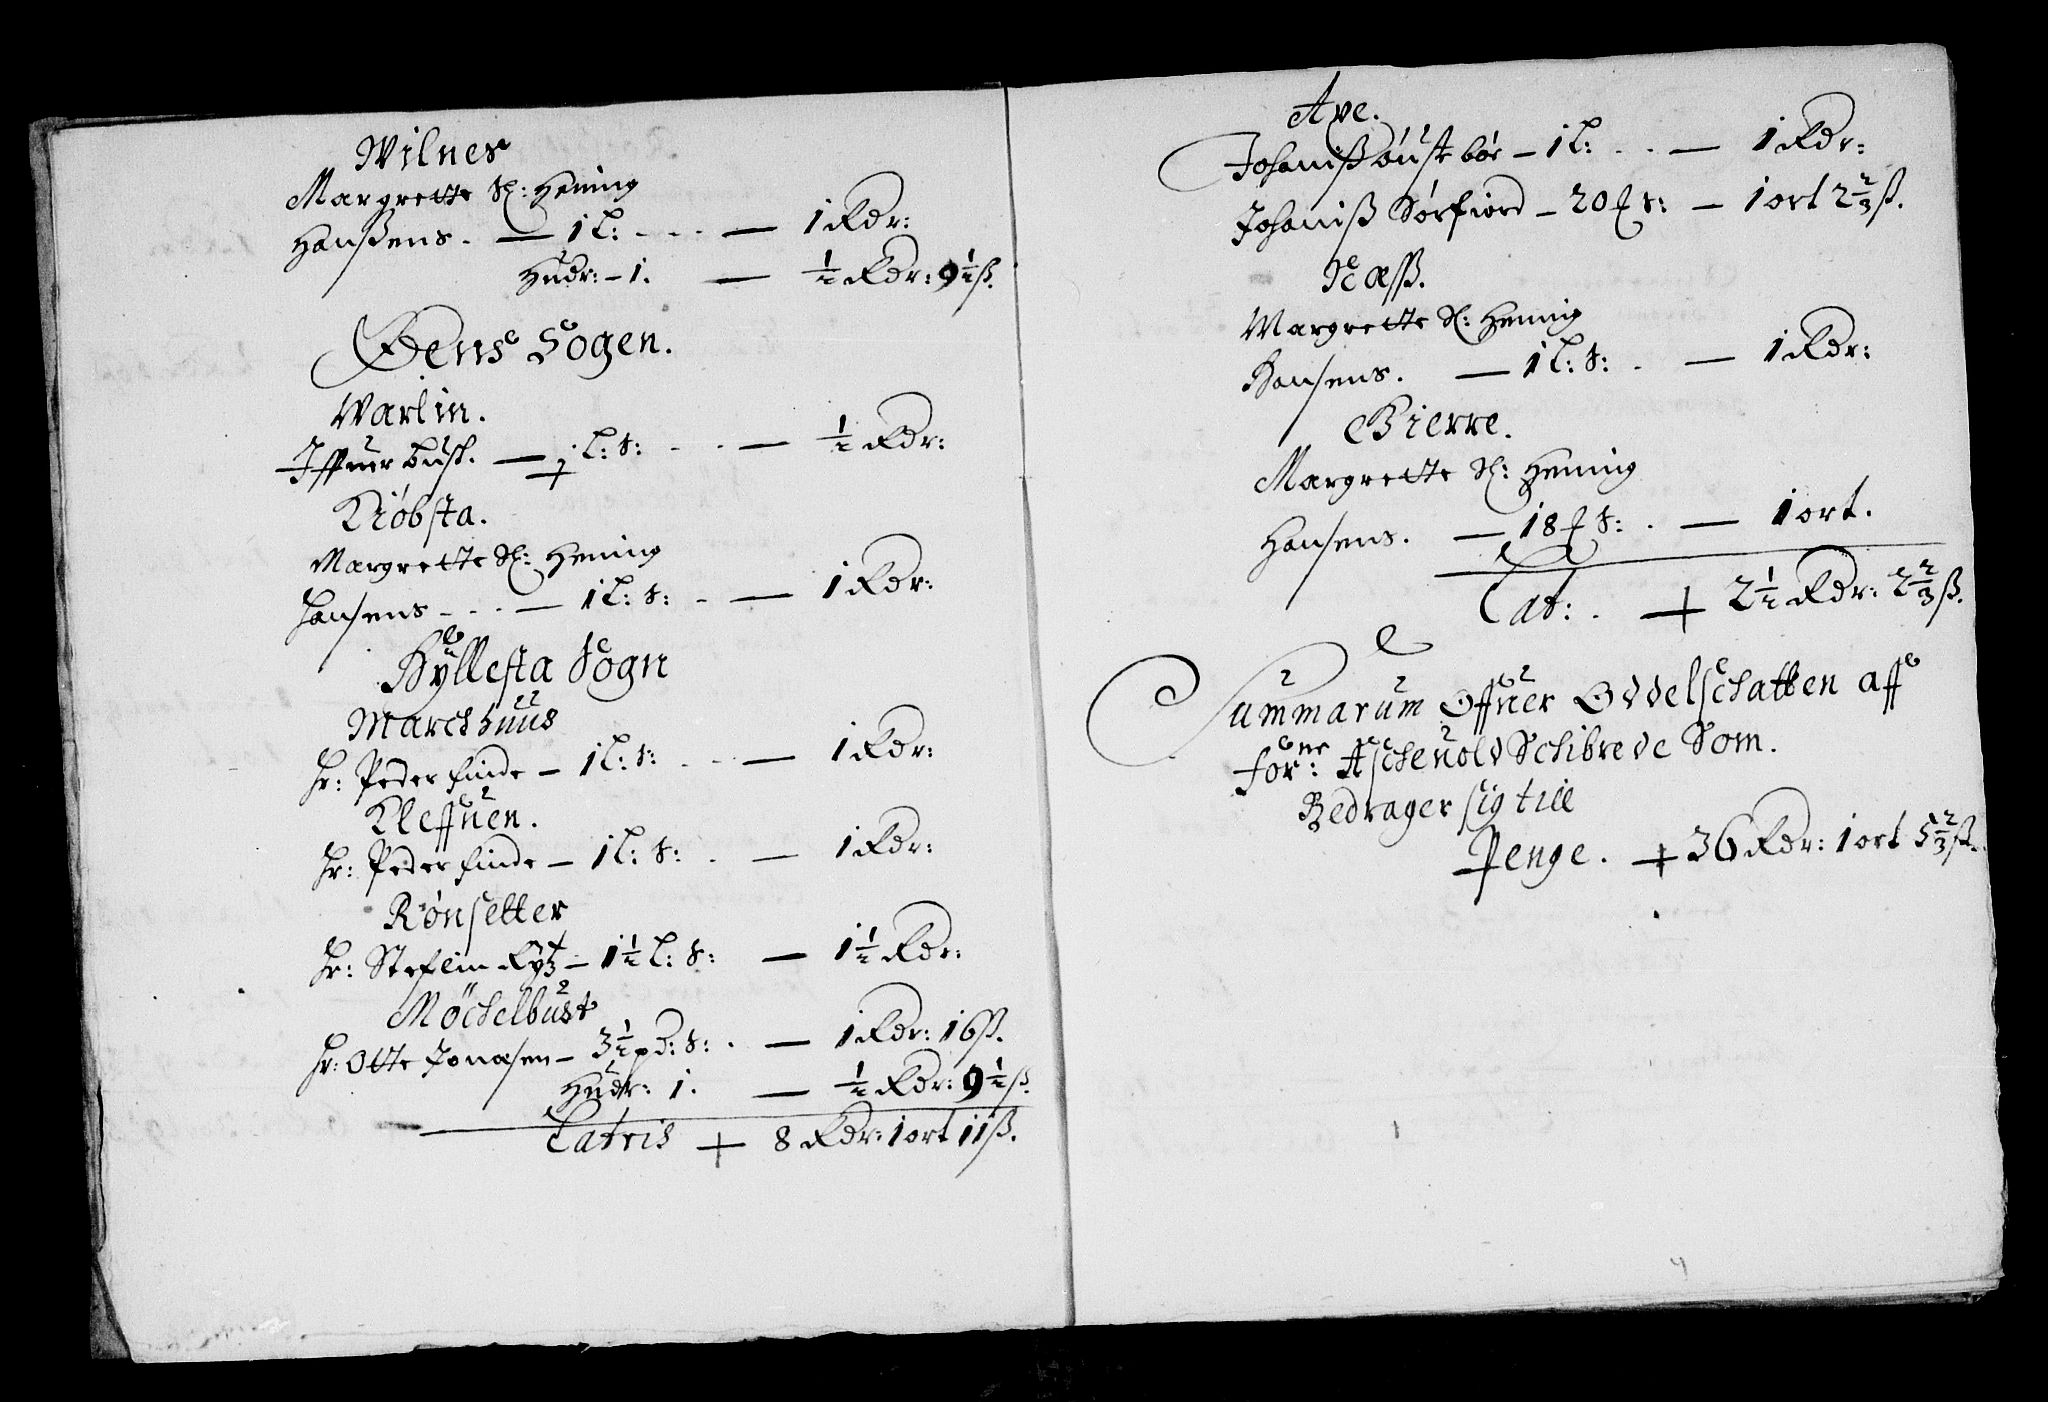 Wilnes
Margrette Sl: Hening
Hanßens. — 1 L: - - - — 1 Rdr:
Hudr: – 1. — ½ Rdr: 9½ ß.
Øens Sogen.
Warlin.
Iffuer Busk. — ½ L: S: - - - — ½ Rdr:
Kiøbsta.
Margrette Sl: Hening
Hansens - - - — 1 L: S: - — 1 Rdr:
Hyllesta Sogn
Marckhuus
Hr: Peder Finde – 1 L: S: - - - — 1 Rdr:
Kleffuen.
Hr: Peder Finde – 1 L: S: . — 1 Rdr:
Rønsetter
Hr: Steffen – 1½ L: S: — 1½ Rdr:
Möckelbust
Hr: Otte Jonasen – 3½ pd: S: . — 1 Rdr: 16 ß.
Hudr: 1. — ½ Rdr: 9½ ß.
Latris + 8 Rdr: 1 ort 11 ß.
Ave.
Johaniß bør – 1 L: . - — 1 Rdr:
Johaniß Sørfiord – 20 S: — 1 ort 2⅔ ß.
Næss.
Margrette Sl: Hening
Hansens. — 1 L: S: . — 1 Rdr:
Bierre.
Margrette Sl: Hening
Hansens. — 18 S: . — 1 ort.
Lat: . + 2½ Rdr: 2⅔ ß.
Summarum Offuer Oddelschatten aff
forne: Aschevold Schibrede Som.
Bedrager sig till
Penge. + 36 Rdr: 1 ort 5⅔ ß.